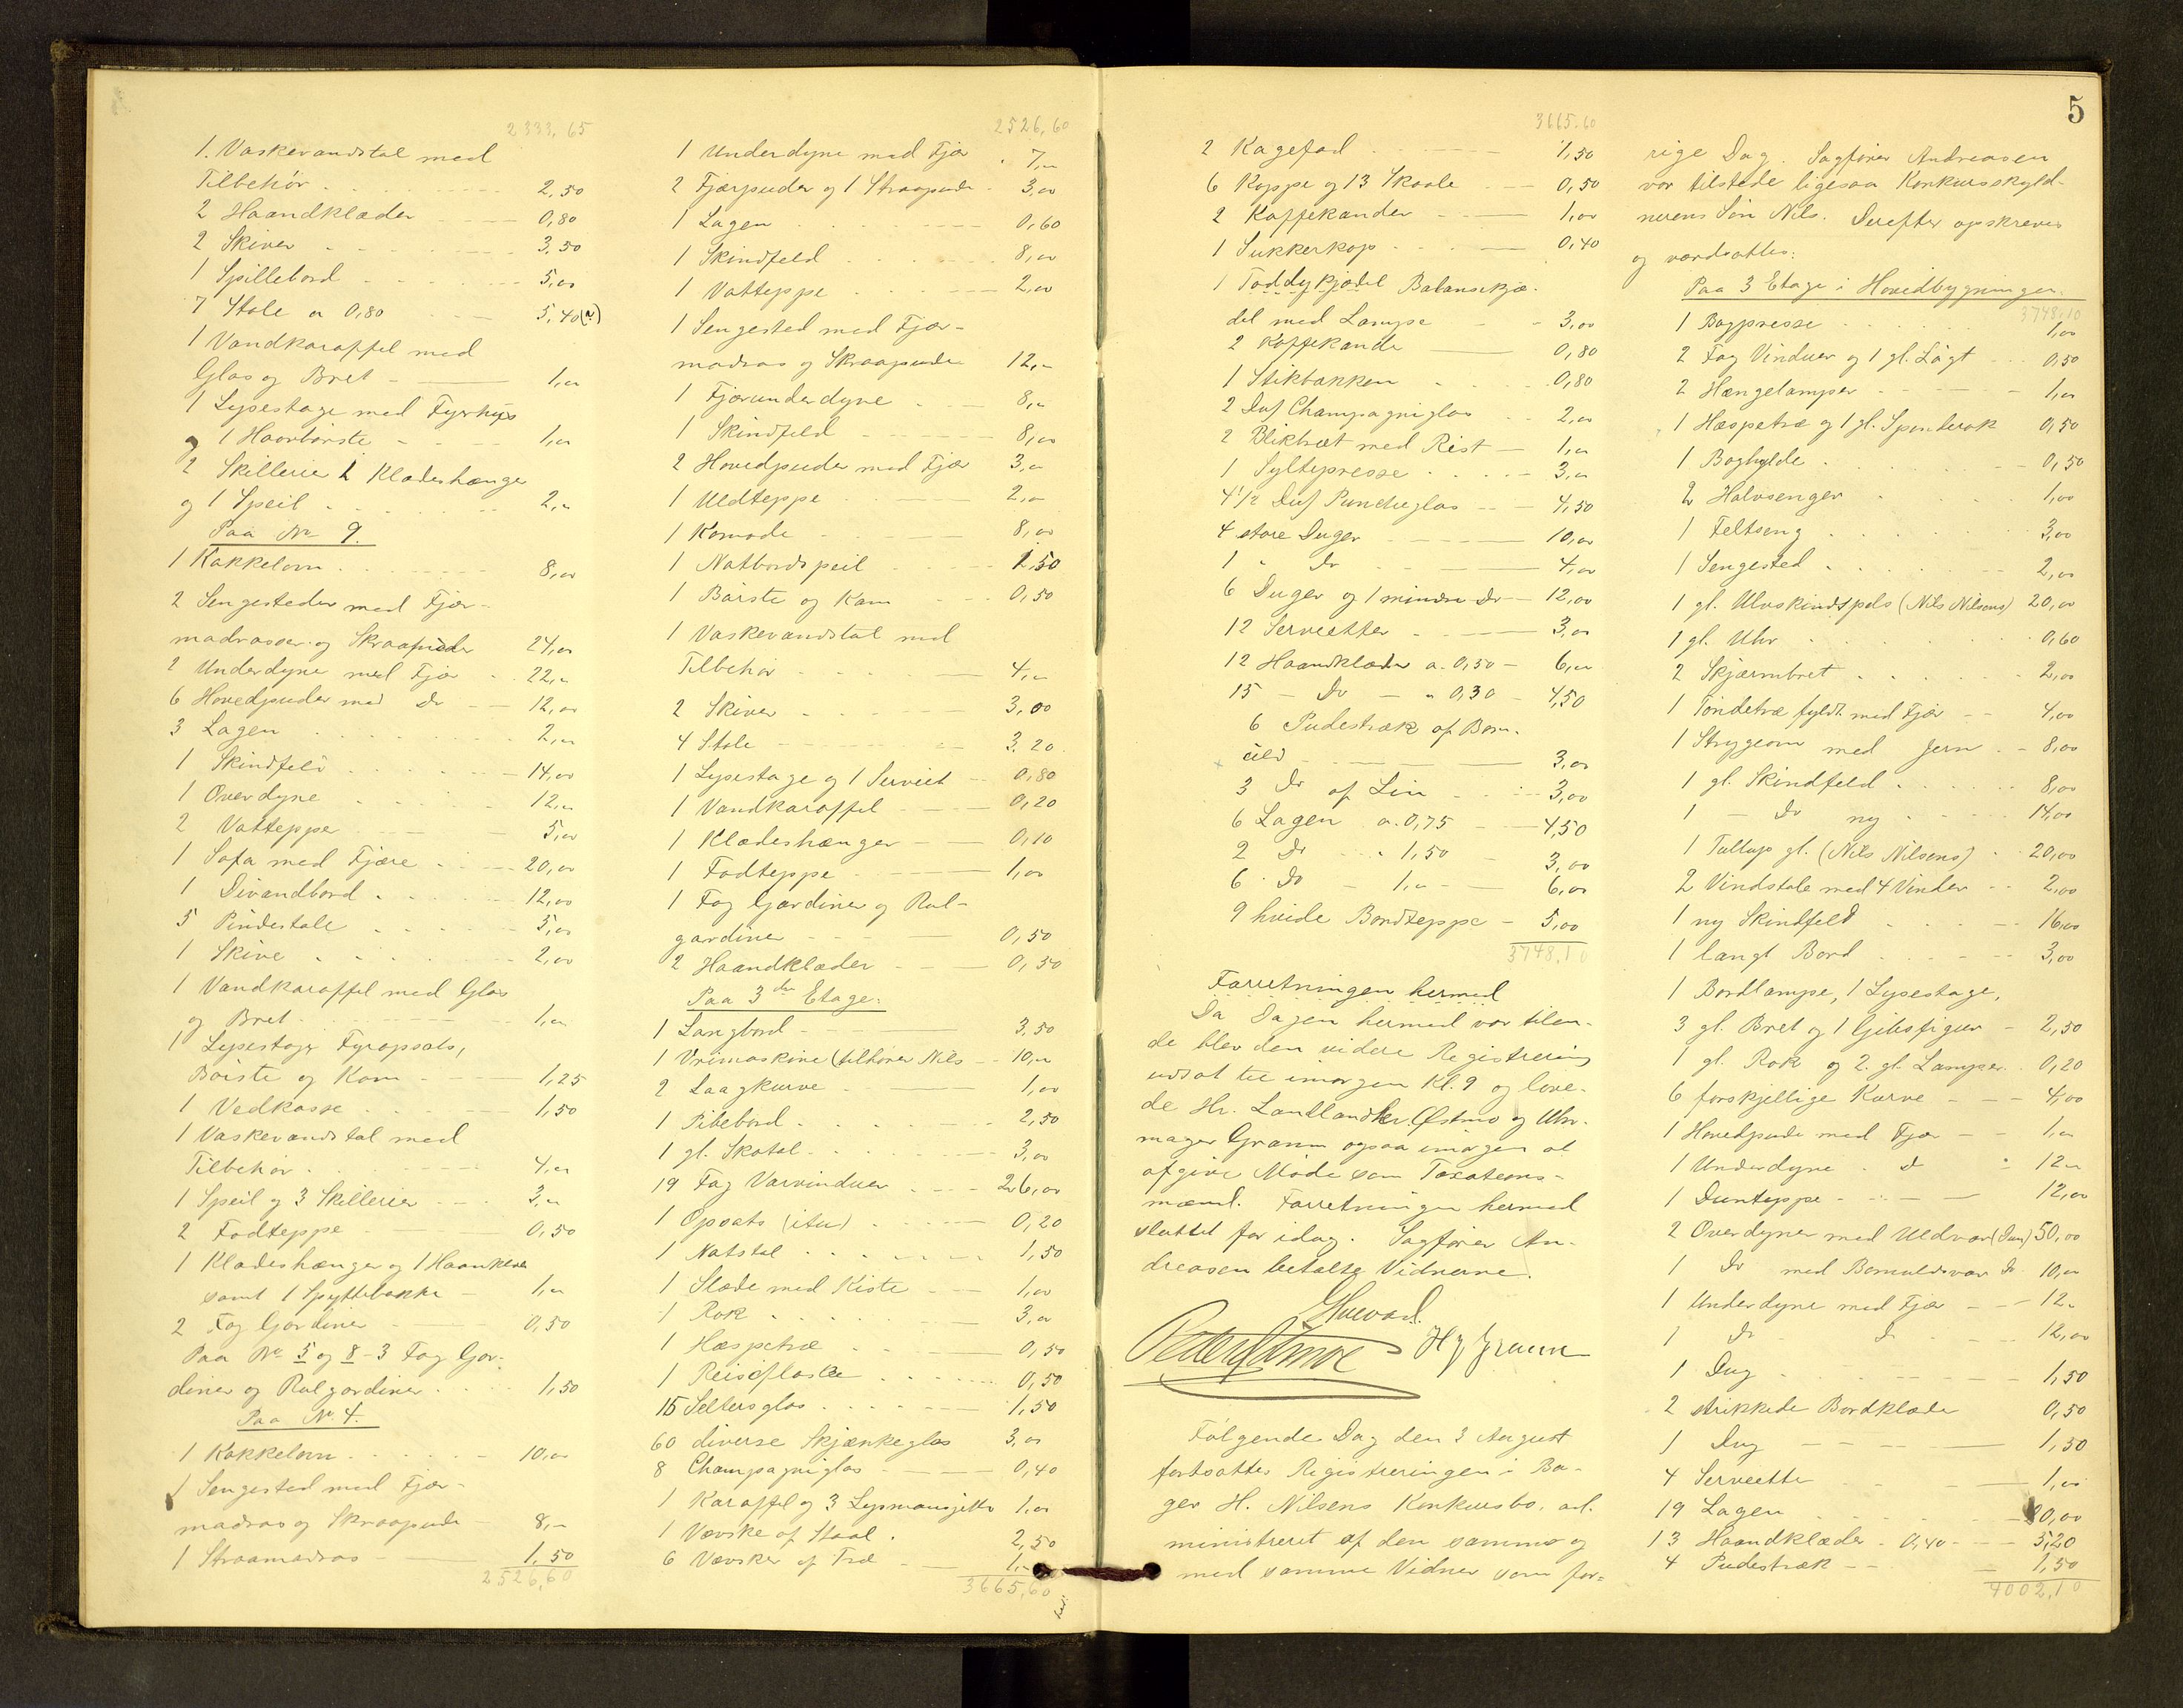 2333,65
1. Vaskevandstel med
Tilbehör 2,50
2 Haandklæder 0,80
2 Skiver 3,50
1 Spillebord 5,00
7 Stole a 0,80 5,40 (?)
1 Vandkaraffel med
Glas og Bret 1,00
1 Lysestage med Fyrhus
og 1 Haarbørste 1,00
2 Skillerier 1 Klædeshænge
og 1 Speil 2,00
Paa No 9.
1 Kakkelovn 8,00
2 Sengesteder med Fjær-
madrasser og Skraapuder 24,00
2 Underdyne med Fjær 22,00
6 Hovedpuder med Do 12,00
3 Lagen 2,00
1 Skindfeld 14,00
1 Overdyne 12,00
2 Vatteppe 5,00
1 Sofa med Fjære 20,00
1 Divandbord 12,00
5 Pindestole 5,00
1 Skive 2,00
1 Vandkaraffel med Glas
og Bret 1,00
1 Lysestage Fyropsats,
Börste og Kam 1,25
1 Vedkasse 1,50
1 Vaskevandstel med
Tilbehör 4,00
1 Speil og 3 Skillerier 3,00
2 Fodteppe 0,50
1 Klædeshænger og 1 Haankleæ
samt 1 Spyttebakke 1,00
2 Fag Gardiner 0,50
Paa No 5 og 8 - 3 Fag Gar-
diner og Rulgardiner 1,50
Paa No 4.
1 Kakkelovn 10,00
1 Sengested med Fjær-
madras og Skraapude 8,-
1 Straamadras 1,50
2526,60
2526,60
1 Underdyne med Fjær 7,00
2 Fjærpuder og 1 Straapude 3,00
1 Lagen 0,60
1 Skindfeld 8,00
1 Vatteppe 2,00
1 Sengested med Fjær-
madras og Skraapude 12,-
1 Fjærunderdyne 8,-
1 Skindfeld 8,00
2 Hovedpuder med Fjær 3,00
1 Uldteppe 2,00
1 Komode 8,00
1 Natbordspeil 1,50
1 Börste og Kam 0,50
1 Vaskevandstel med
Tilbehör 4,-
2 Skiver 3,00
4 Stole 3,20
1 Lysestage og 1 Serviet 0,80
1 Vandkaraffel 0,20
1 Klædeshænger 0,10
1 Fodteppe 1,00
1 Fag Gardiner og Rul-
gardiner 0,50
2 Haandklæder 0,50
Paa 3die Etage:
1 Langbord 3,50
1 Vrimaskine (tilhører Nils 10,00
2 Laagkurve 1,00
1 Pibebord 2,50
1 gl. Skatol 3,00
19 Fag Varvinduer 26,00
1 Opsats (itu) 0,20
1 Natstol 1,50
1 Slæde med Kiste 1,00
1 Rok 3,00
1 Hæspetræ 0,50
1 Reiseflaske 0,50
15 Seltersglas 1,50
60 diverse Skjænkeglas 3,00
8 Champagniglas 0,40
1 Karaffel og 3 Lysmansjetter 1,00
1 Vævske af Staal 2,50
6 Vævsker af Træ 1,-
3665,60
3665.60
2 Kagefad 1,50
6 Koppe og 13 Skaale 0,50
2 Kaffekander 1,00
1 Sukkerkop 0,40
1 Toddykjedel Balansekje-
del med Lampe 3,00
2 Kaffekande 0,80
1 Stikbakken 0,80
2 Dus Champagniglas 2,00
2 Blikbræt med Rist 1,00
1 Syltepresse 3,00
4 1/2 Dus Puncheglas 4,50
4 store Duger 10,00
1 " Do 4,00
6 Duger og 1 mindre Do 12,00
12 Servietter 3,00
12 Haandklæder a. 0,50 6,00
15 - Do - " 0,30 4,50
6 Pudestræk af Bom-
uld 3,00
3 Do af Lin 3,00
6 Lagen a. 0,75 4,50
2 Do " 1,50 3,00
6 Do - 1,00 6,00
9 hvide Bordteppe 5,00
3748,10
Forretningen hermed
Da Dagen hermed var tilen-
de blev den videre Registrering
udsat til imorgen Kl. 9 og love-
de Hr. Landhandler Østmo og Uhr-
mager Gramm ogsaa imorgen at
afgive Møde som Taxations-
mænd. Forretningen hermed
sluttet for idag. Sagfører An-
dreasen betalte Vidnerne.
Peter Østmoe Hg Gramm
Følgende Dag den 3 August
fortsattes Registreringen i Ba-
ger H. Nilsens Konkursbo, ad-
ministreret af den samme og
med samme Vidner som for-
5
rige Dag. Sagfører Andreasen
var tilstede ligesaa Konkursskyld-
nerens Søn Nils. Derefter opskreves
og værdsattes:
Paa 3 Etage i Hovedbygningen.
3748,10
1 Bagpresse 1,00
2 Fag Vinduer og 1 gl. Lögt 0,50
2 Hængelamper 1,00
1 Hæspetræ og 1 gl. Spinderok 0,50
1 Boghylde 0,50
2 Halvsenger 1,00
1 Feltseng 3,00
1 Sengested 2,00
1 gl. Ulveskindspels (Nils Nilsens) 20,00
1 gl. Uhr 0,60
2 Skjærmbret 2,00
1 Töndetræ fyldt med Fjær 4,00
1 Strygeovn med Jern 8,00
1 gl. Skindfeld 8,00
1 - Do ny 14,00
1 Tullup gl. (Nils Nilsens) 20,00
2 Vindstole med 4 Vinder 2,00
1 ny Skindfeld 16,00
1 langt Bord 3,00
1 Bordlampe, 1 Lysestage,
3 gl. Bret og 1 Gibsfigur 2,50
1 gl. Rok og 2 gl. Lamper 0,20
6 forskjellige Kurve 4,00
1 Hovedpude med Fjær 1,00
1 Underdyne Do 12,-
1 Dunteppe 12,00
2 Overdyner med Uldvar (Dun) 50,00
1 Do med Bomuldsvar Do 10,00
1 Underdyne med Fjær 12,-
1 Do Do 12,00
1 Dug 1,50
2 strikkede Bordklæde 0,50
1 Dug 1,50
4 Serviette 1,00
19 Lagen 20,00
13 Haandklæder 0,40 5,20
4 Pudestræk 1,50
4002,10